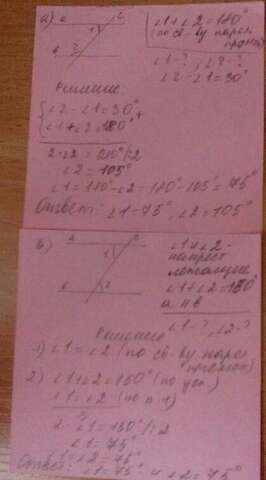 а) a c
1
b 2
∠1+∠2=180°
(по св-ву парал
прямых)
∠1-?, ∠2-?
∠2-∠1=30°
Решение
{∠2-∠1=30° +
∠1+∠2=180°
2·∠2=210°/:2
∠2=105°
∠1=180°-∠2=180°-105°=75°
Ответ: ∠1=75°, ∠2=105°
б) a c
1
b 2
∠1 и ∠2-
накрест
лежащие
∠1+∠2=150°
a || b
∠1-?, ∠2-?
Решение
1) ∠1=∠2 (по св-ву парал
прямых)
2) ∠1+∠2=150° (по усл.)
∠1=∠2 (по п-1)
2·∠1=150°/:2
∠1=75°
∠1=∠2=75°
Ответ: ∠1=75° и ∠2=75°